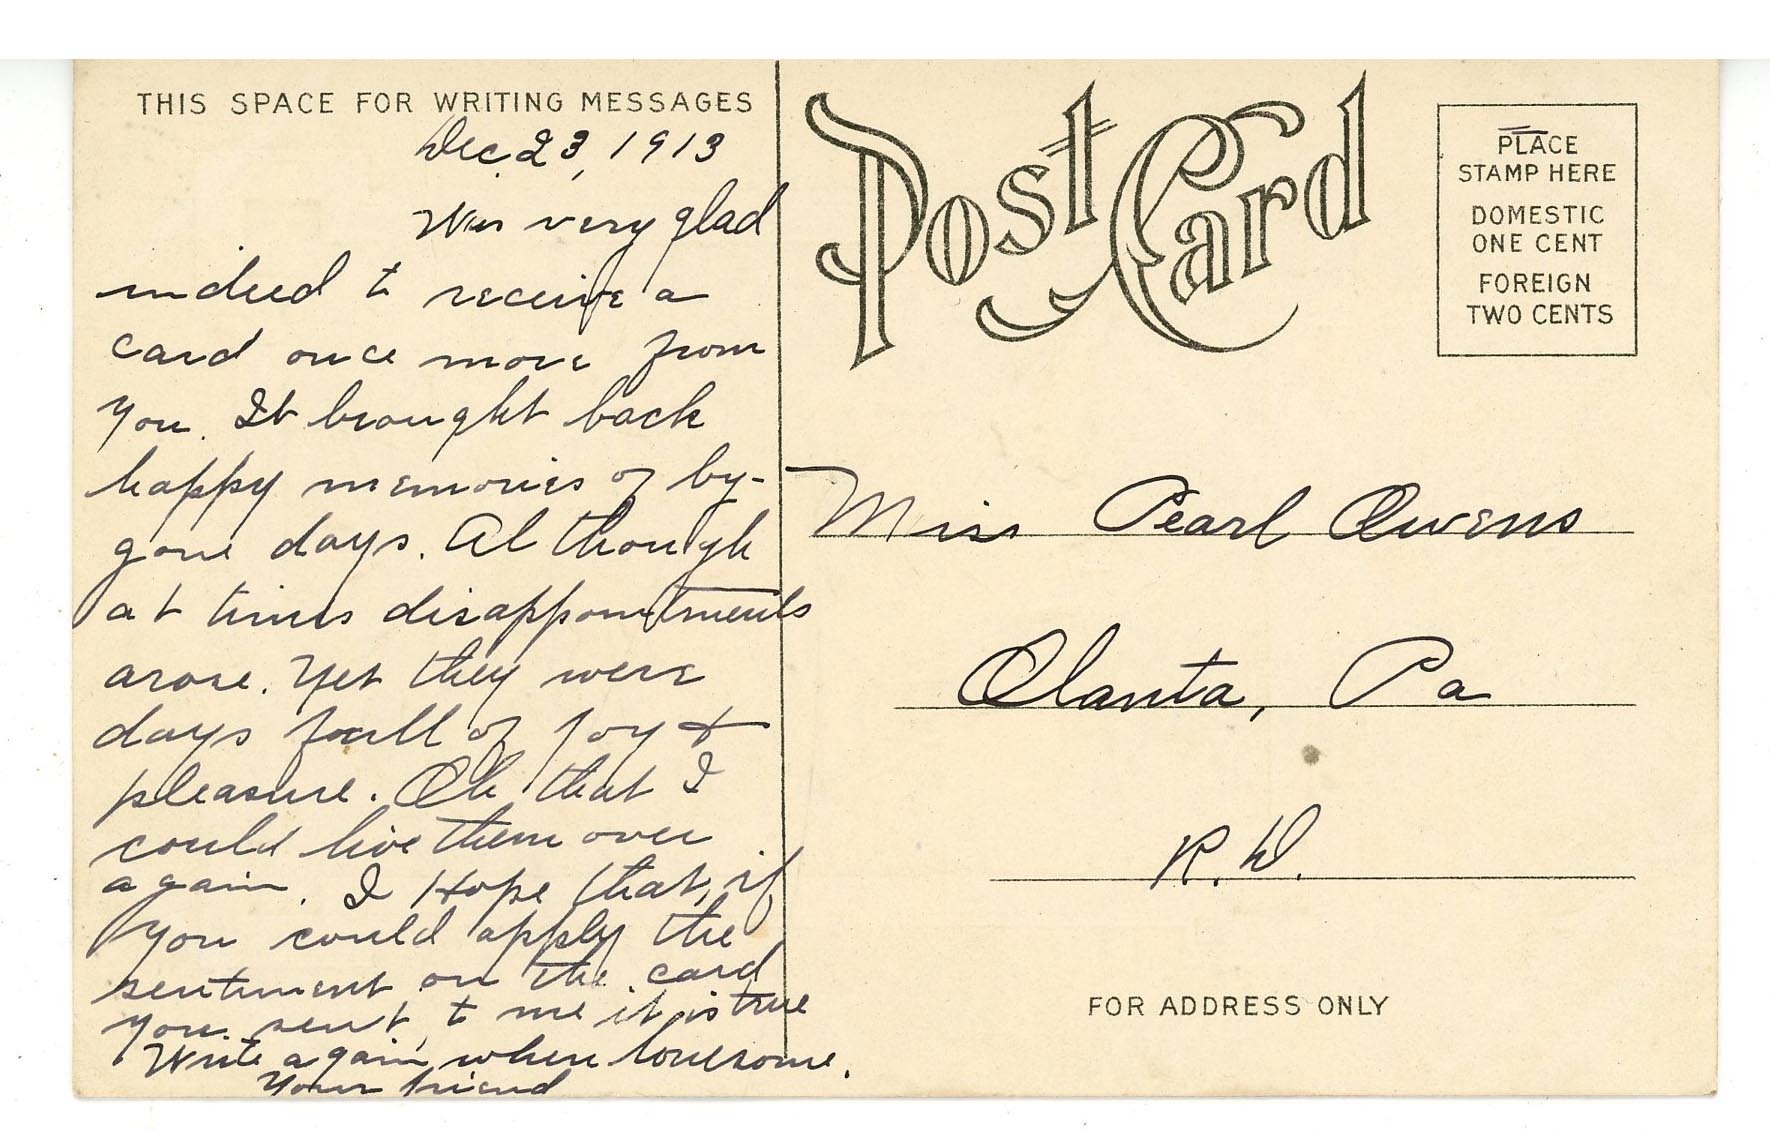 THIS SPACE FOR WRITING MESSAGES
Dec. 23, 1913
Was very glad
indeed to receive a
card once more from
you. It brought back
happy memories of by-
gone days. Although
at times disappointments
arose. Yet they were
days full of joy &
pleasure. Oh that I
could live them over
again. I Hope that, if
you could apply the
sentiment on the card
you sent to me it is true
Write again when lonesome.
Your friend
Post Card
PLACE
STAMP HERE
DOMESTIC
ONE CENT
FOREIGN
TWO CENTS
Miss Pearl Owens
Olanta, Pa
R.D.
FOR ADDRESS ONLY